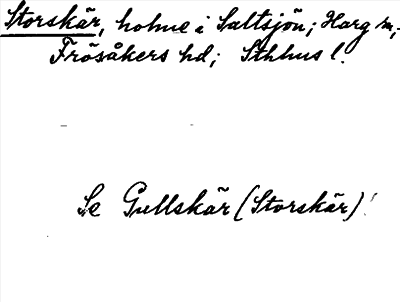 Storskär, holme i Saltsjön; Harg sn,
Frösåkers hd; Sthlms l.
Se Gullskär (Storskär)!